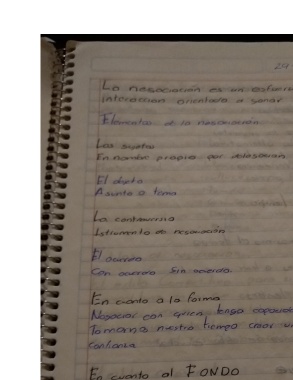 24
La negociación es un esfuerzo
interacción orientada a ganar
Elementos de la negociación
Los sujetos
En nombre propio por delegación
El objeto
Asunto o tema
La controversia
Istrumento de negociación
El acuerdo
Con acuerdo Sin acuerdo.
En cuanto a la forma
Negociar con quien tenga
Tomarnos nuestro tiempo crear un
Confianza
En cuanto al FONDO